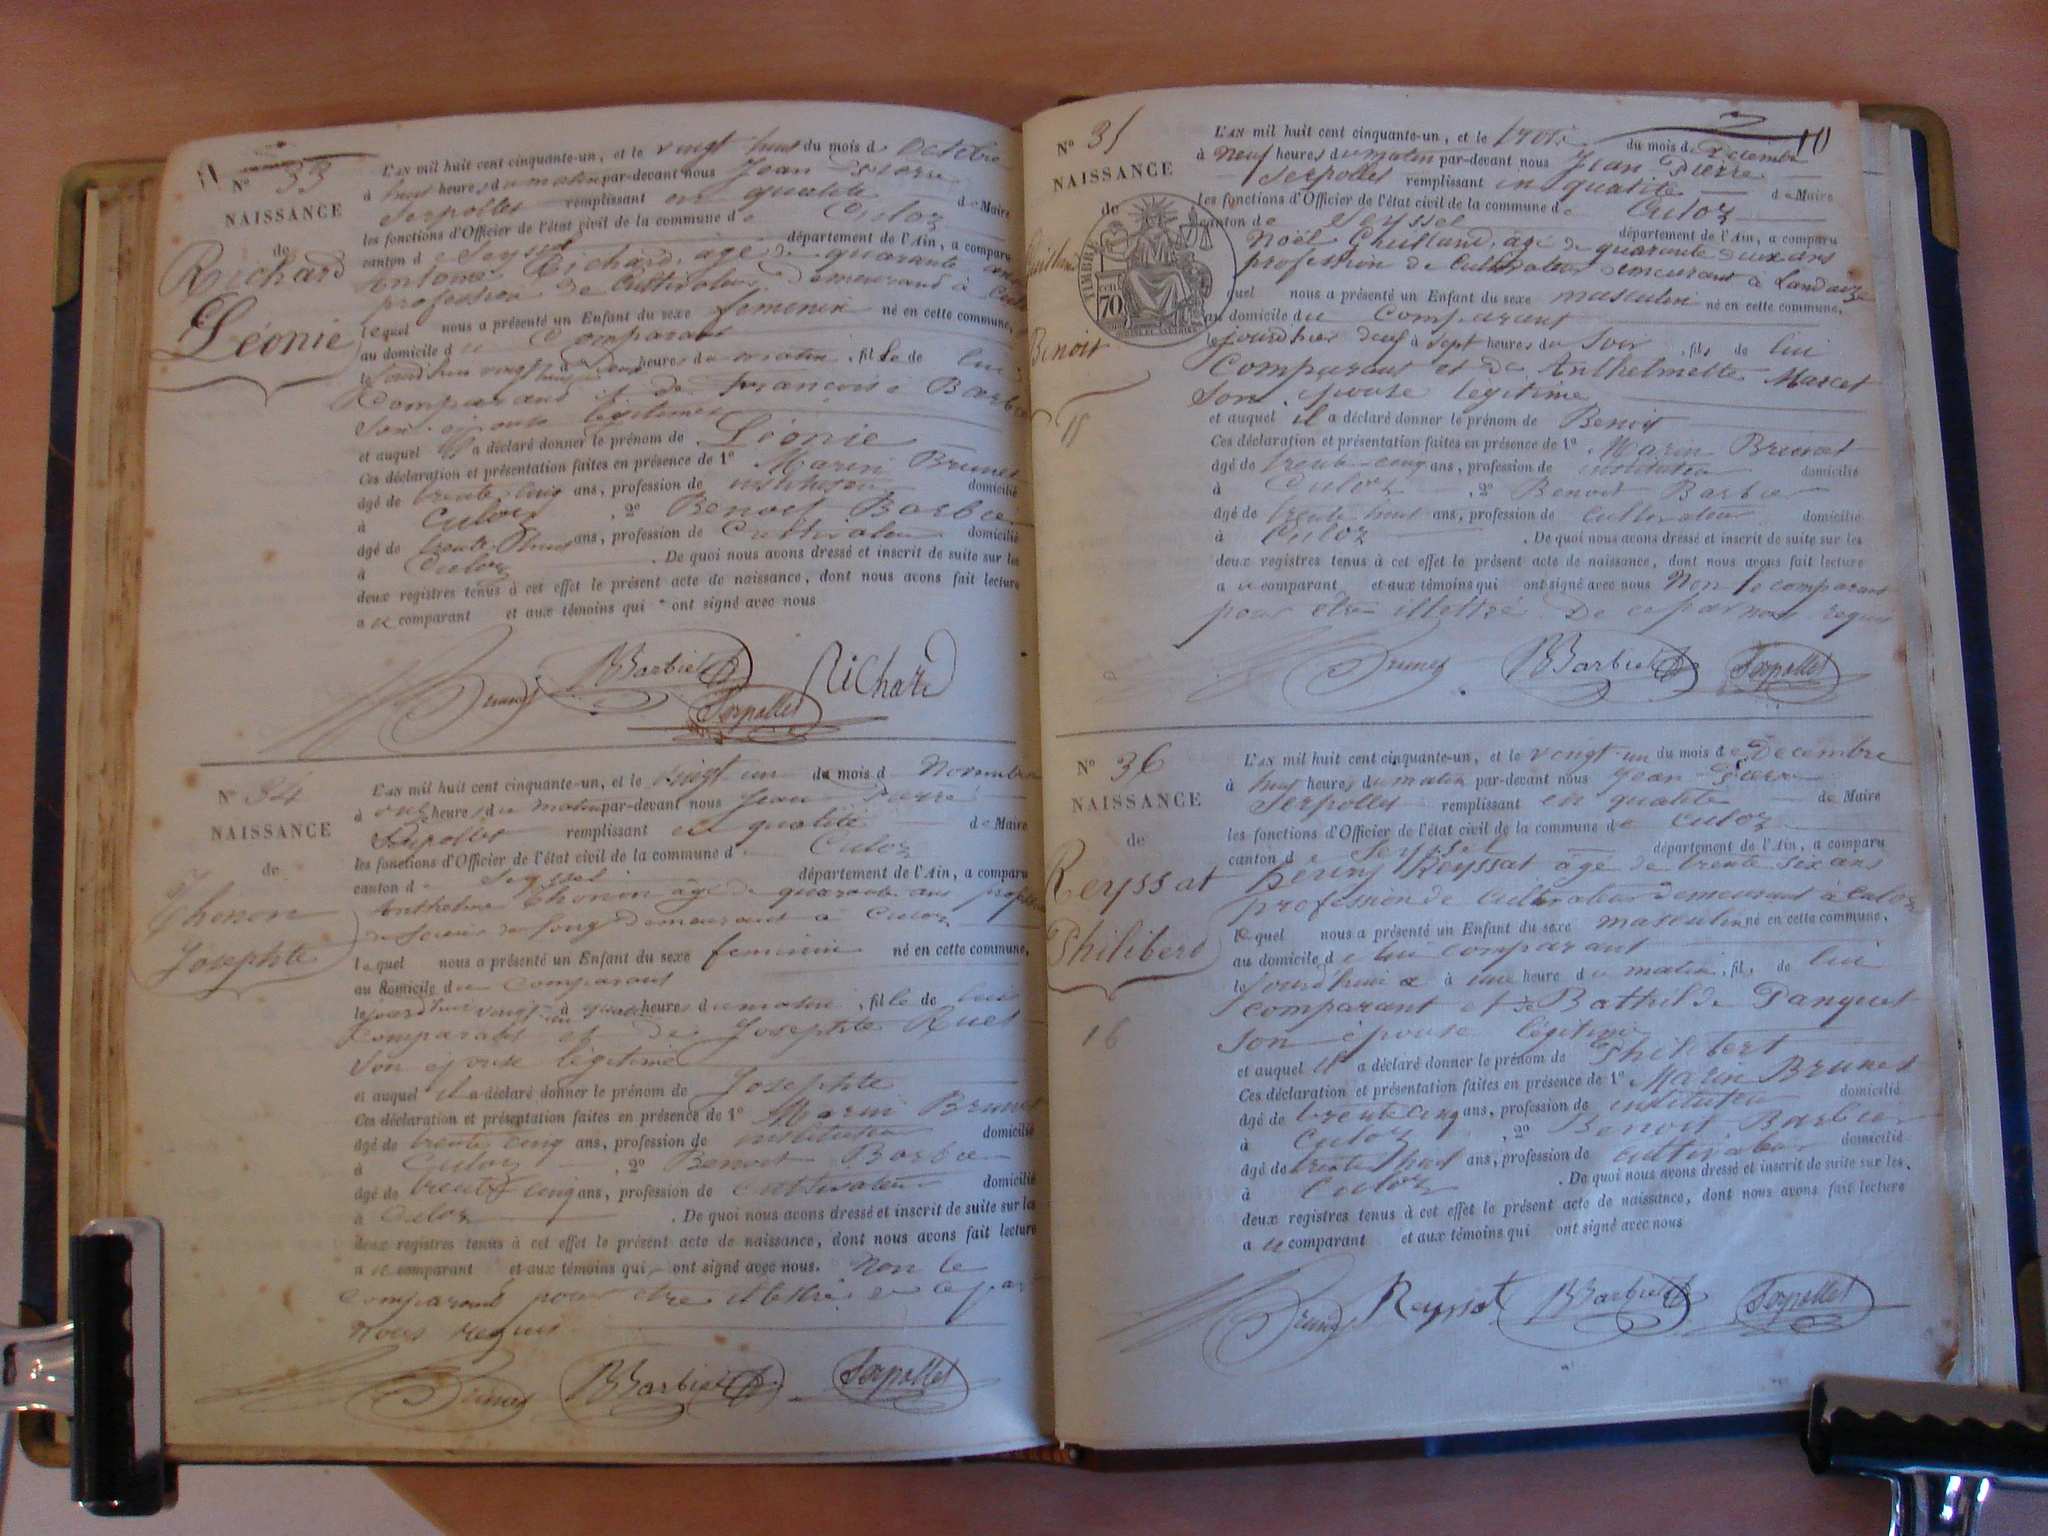 N° 33
NAISSANCE
de
Richard
Léonie
L'AN mil huit cent cinquante-un, et le vingt huit du mois d Octobre
à huit heures du matin par-devant nous Jean Pierre
Serpollet remplissant en qualité de Maire
les fonctions d'Officier de l'état civil de la commune de Culoz
canton de Seyssel département de l'Ain, a comparu
Antoine Richard, âgé de quarante ans
profession de Cultivateur, demeurant à Culoz
lequel nous a présenté un Enfant du sexe feminin né en cette commune,
au domicile du Comparant
le jourd'hui vingt huit à heures du matin, fille de lui
Comparant et de Françoise Barbier
Son epouse legitime
et auquel il a déclaré donner le prénom de Léonie
Ces déclaration et présentation faites en présence de 1° Marin Brunet
âgé de trente cinq ans, profession de instituteur domicilié
à Culoz, 2° Benoit Barbier
âgé de trente huit ans, profession de Cultivateur domicilié
à Culoz. De quoi nous avons dressé et inscrit de suite sur les
deux registres tenus à cet effet le présent acte de naissance, dont nous avons fait lecture
au comparant et aux témoins qui ont signé avec nous
Brunet BBarbier Serpollet Richard
N° 34
NAISSANCE
de
Thonon
Josephte
L'AN mil huit cent cinquante-un, et le vingt un du mois d Novembre
à onze heures du matin par-devant nous Jean Pierre
Serpollet remplissant en qualité de Maire
les fonctions d'Officier de l'état civil de la commune de Culoz
canton de Seyssel département de l'Ain, a comparu
Anthelme Thonon âgé de quarante ans profession
de Scieur de long demeurant à Culoz
lequel nous a présenté un Enfant du sexe feminin né en cette commune,
au domicile du Comparant
le jourd'hui vingt un à quatre heures du matin, fille de lui
Comparant et de Josephte Ruet
Son epouse légitime
et auquel il a déclaré donner le prénom de Josephte
Ces déclaration et présentation faites en présence de 1° Marin Brunet
âgé de trente cinq ans, profession de instituteur domicilié
à Culoz, 2° Benoit Barbier
âgé de trente cinq ans, profession de cultivateur domicilié
à Culoz. De quoi nous avons dressé et inscrit de suite sur les
deux registres tenus à cet effet le présent acte de naissance, dont nous avons fait lecture
au comparant et aux témoins qui ont signé avec nous. Non le
comparant pour être illettré de ce par
nous requis
Brunet BBarbier Serpollet
10
N° 35
NAISSANCE
de
Benoit
15
TIMBRE
70
L'AN mil huit cent cinquante-un, et le trois du mois de Décembre
à neuf heures du matin par-devant nous Jean Pierre
Serpollet remplissant en qualité de Maire
les fonctions d'Officier de l'état civil de la commune de Culoz
canton de Seyssel département de l'Ain, a comparu
Noël Guilland, âgé de quarante deux ans
profession de Cultivateur demeurant à Landaize
quel nous a présenté un Enfant du sexe masculin né en cette commune,
au domicile du Comparant
à sept heures du Soir, fils de lui
Comparant et de Anthelmette Marcet
Son epouse legitime
et auquel il a déclaré donner le prénom de Benoit
Ces déclaration et présentation faites en présence de 1° Marin Brunet
âgé de trente-cinq ans, profession de instituteur domicilié
à Culoz, 2° Benoit Barbier
âgé de trente huit ans, profession de Cultivateur domicilié
à Culoz. De quoi nous avons dressé et inscrit de suite sur les
deux registres tenus à cet effet le présent acte de naissance, dont nous avons fait lecture
au comparant et aux témoins qui ont signé avec nous Non le comparant
pour être illettré De ce par nous requis
Brunet BBarbier Serpollet
N° 36
NAISSANCE
de
Reyssat
Philibert
16
L'AN mil huit cent cinquante-un, et le vingt-un du mois de Decembre
à huit heures du matin par-devant nous Jean Pierre
Serpollet remplissant en qualité de Maire
les fonctions d'Officier de l'état civil de la commune de Culoz
canton de Seyssel département de l'Ain, a comparu
Reyssat âgé de trente six ans
profession de Cultivateur demeurant à Culoz
lequel nous a présenté un Enfant du sexe masculin né en cette commune,
au domicile de lui comparant
le jourd'hui à une heure du matin, fils de lui
comparant et de Bathilde Panquet
Son épouse légitime
et auquel il a déclaré donner le prénom de Philibert
Ces déclaration et présentation faites en présence de 1° Marin Brunet
âgé de trente cinq ans, profession de instituteur domicilié
à Culoz, 2° Benoit Barbier
âgé de trente huit ans, profession de cultivateur domicilié
à Culoz. De quoi nous avons dressé et inscrit de suite sur les
deux registres tenus à cet effet le présent acte de naissance, dont nous avons fait lecture
au comparant et aux témoins qui ont signé avec nous
Brunet Reyssat BBarbier Serpollet